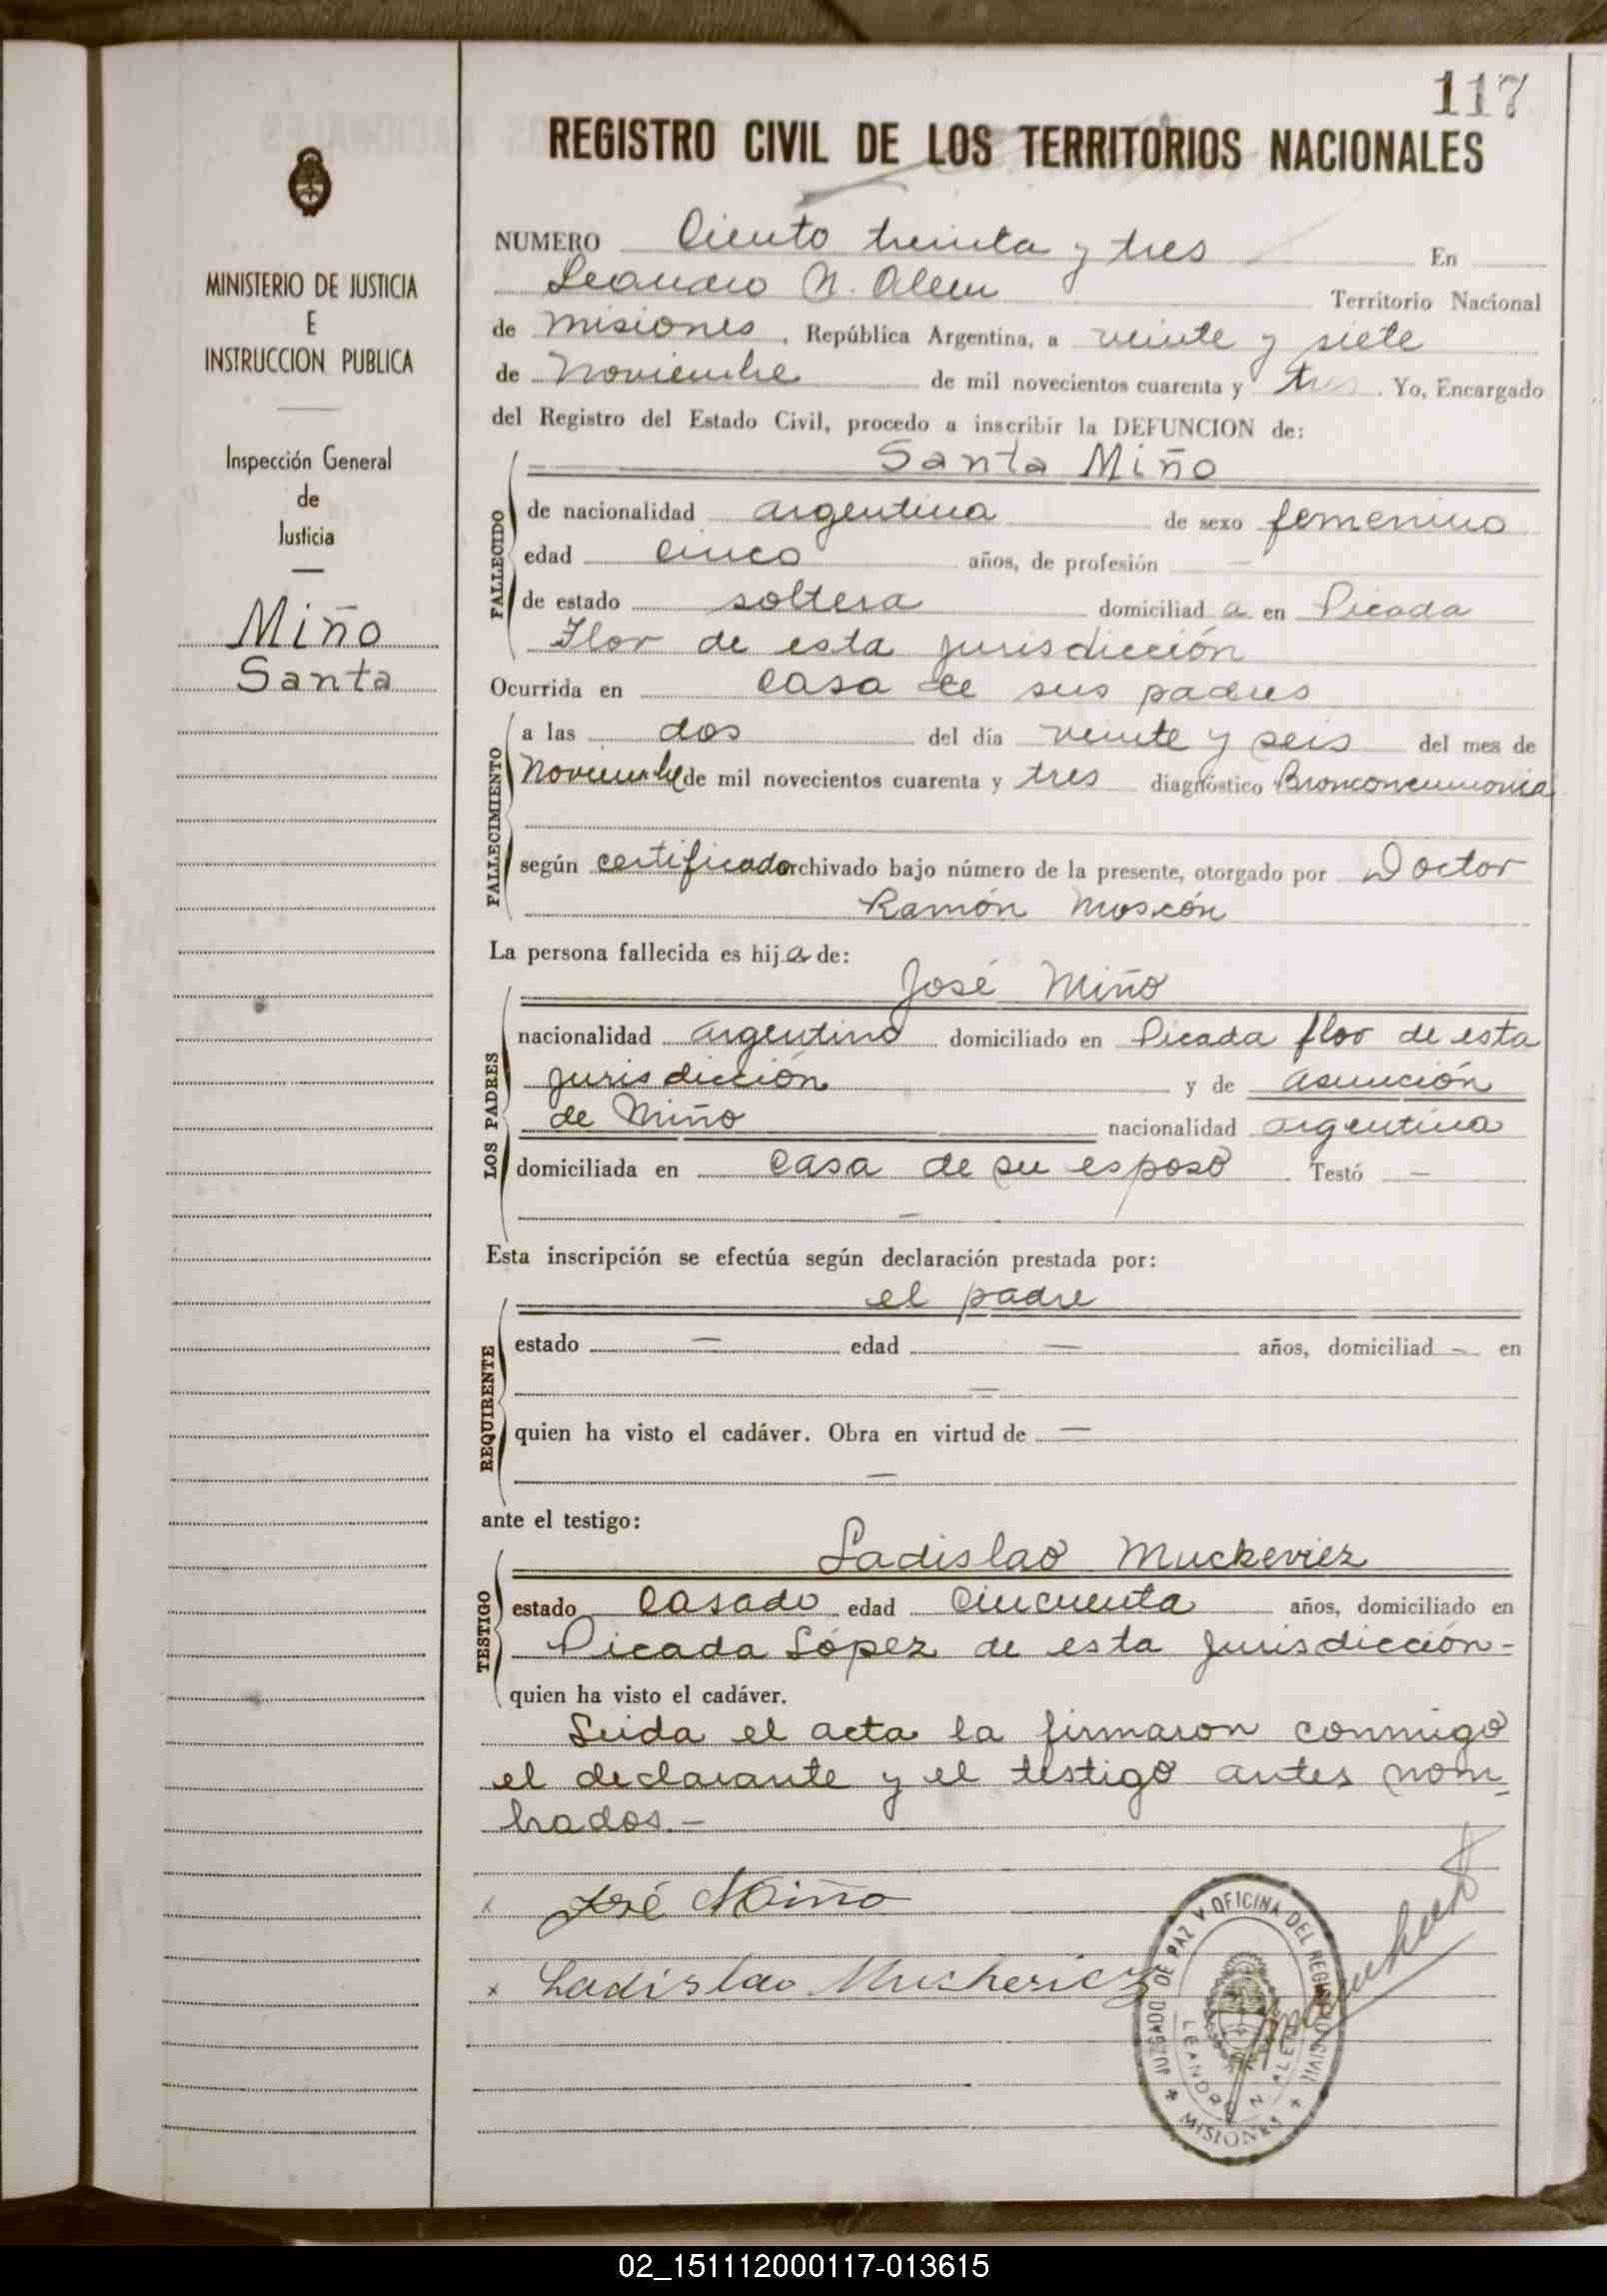 117
REGISTRO CIVIL DE LOS TERRITORIOS NACIONALES
MINISTERIO DE JUSTICIA
E
INSTRUCCION PUBLICA
Inspección General
de
Justicia
Miño
Santa
NUMERO Ciento treinta y tres En
Leandro N. Alem Territorio Nacional
de Misiones, República Argentina, a veinte y siete
de Noviembre de mil novecientos cuarenta y tres. Yo, Encargado
del Registro del Estado Civil, procedo a inscribir la DEFUNCION de:
Santa Miño
FALLECIDO
de nacionalidad argentina de sexo femenino
edad cinco años, de profesión —
de estado soltera domiciliad a en Picada
Flor de esta jurisdicción
Ocurrida en casa de sus padres
FALLECIMIENTO
a las dos del día veinte y seis del mes de
Noviembre de mil novecientos cuarenta y tres diagnóstico Bronconeumonia
según certificado archivado bajo número de la presente, otorgado por Doctor
Ramón Moscón
La persona fallecida es hij a de:
José Miño
LOS PADRES
nacionalidad argentino domiciliado en Picada flor de esta
jurisdicción y de asunción
de Miño nacionalidad argentina
domiciliada en casa de su esposo Testó —
—
Esta inscripción se efectúa según declaración prestada por:
el padre
REQUIRENTE
estado — edad — años, domiciliad — en
—
quien ha visto el cadáver. Obra en virtud de —
—
ante el testigo:
Ladislao Muckeviez
TESTIGO
estado casado edad cincuenta años, domiciliado en
Picada López de esta jurisdicción-
quien ha visto el cadáver.
Leida el acta la firmaron conmigo
el declarante y el testigo antes nom-
brados.-
x José Miño
x Ladislao Muckericz
JUZGADO DE PAZ Y OFICINA DEL REGISTRO CIVIL
LEANDRO N. ALEM
MISIONES
02_151112000117-013615